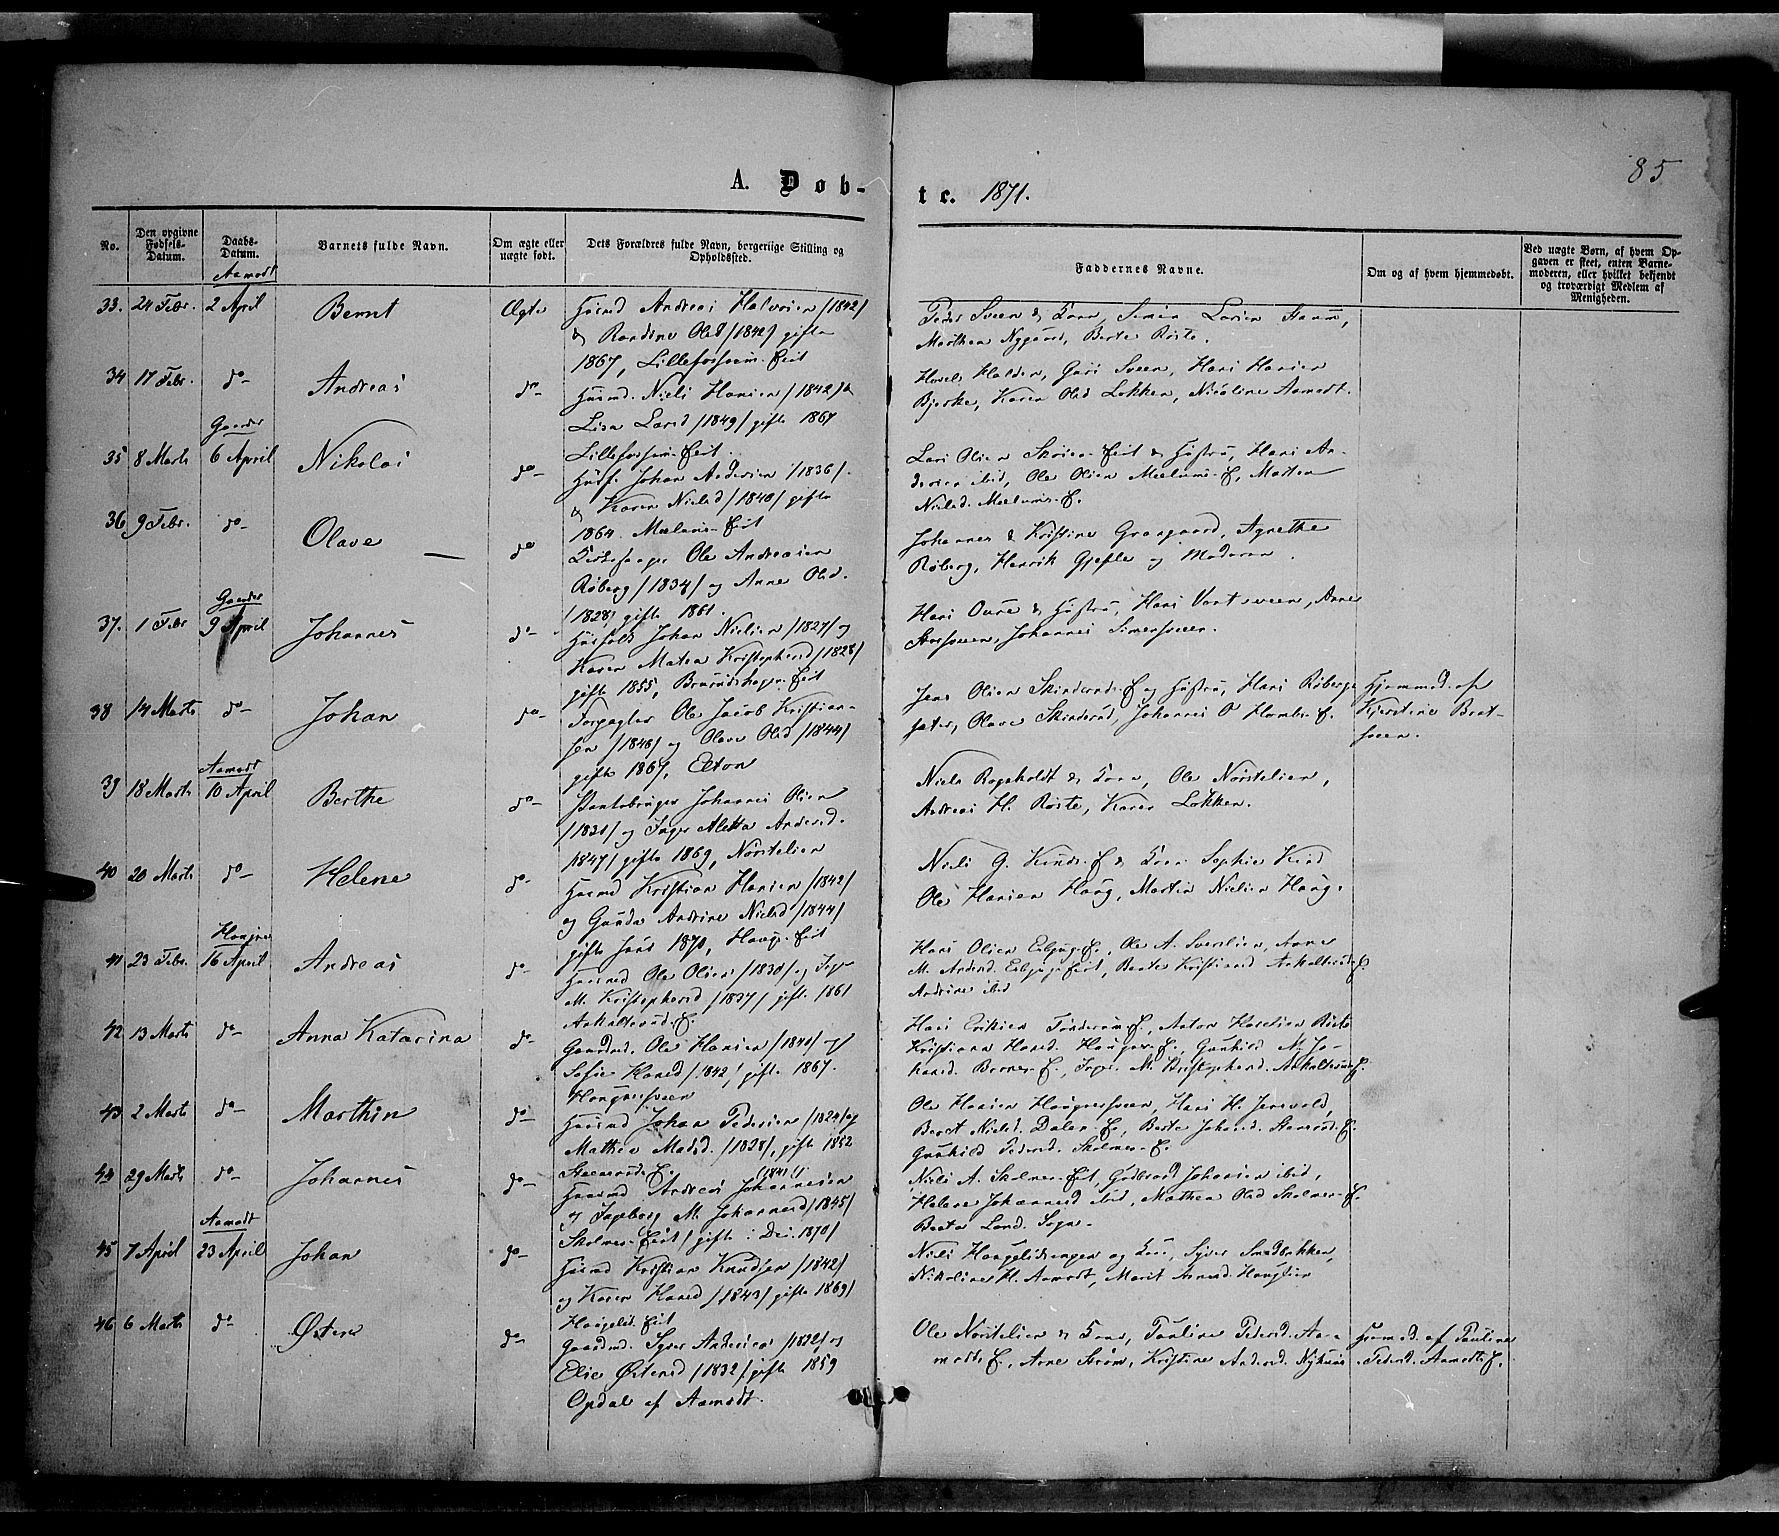 85
A. Døb-
te. 1871.
No.
Den opgivne Fødsels-Datum.
Daabs-Datum.
Barnets fulde Navn.
Om ægte eller uægte født.
Dets Forældres fulde Navn, borgerlige Stilling og Opholdssted.
Faddernes Navne.
Om og af hvem hjemmedøbt.
Ved uægte Børn, af hvem Opgaven er skeet, enten Barnemoderen, eller hvilket bekjendt og troværdigt Medlem af Menigheden.
Aamodt
33. 24 Febr. 2 April Bernt Ægte Huusmd Andreas Halvorsen /1842/
& Randine Olsd /1842/ gifte
1867, Lillefosheim-Eiet
Peder Sveen & Kone, Simen Larsen Haam,
Marthea Nygaard, Berte Røste.
34 17 Febr. do Andreas do Husmd. Niels Hansen /1842/ &
Lisa Larsd /1849/ gifte 1867
Lillefosheim-Eiet.
Halden, Guri Sveen, Hans Hansen
Bjerke, Karen Olsd Løkken, Nicoline Aamodt.
Gaarder
35 8 Marts 6 April Nikolai do Husf. Johan Andersen /1836/
& Karen Nielsd /1840/ gifte
1864. Melums-Eiet
Lars Olsen Skøien-Eiet & Hustru, Hans An-
dersen ibid, Ole Olsen Melums-E, Marten
Nielsd. Melums-E.
36 9 Febr. do Olave do Kirkesanger Ole Andreasen
Røberg /1834/ og Anne Olsd.
/1828/ gifte 1861.
Johannes & Kristine Graagaard, Agnethe
Røberg, Henrik Gjefle og Moderen.
Gaarder
37. 1 Febr 9 April Johannes do Husfolk Johan Nielsen /1827/ og
Karen Matea Kristophersd /1828/
gifte 1855, Eiet
Hans Oure & Hustru, Hans Sveen, Anne
Johannes Simensveen.
38 14 Marts do Johan do Forpagter Ole Jacob Kristian-
sen /1848/ og Olave Olsd /1844/
gifte 1867, Elton
Jens Olsen Skinderud-E og Hustru, Hans Røberg-
Olave Skinderud, Johannes O E.
Hjemmed. af
Kjerstine Brat-
sveen.
Aamodt
39 18 Marts 10 April Berthe do Pantebruger Johannes Olsen
/1821/ og Inger Aletta Andersd.
1847/ gifte 1869, Norstelien
Niels Rognholdt & Kone, Ole Norstelien,
Andreas H. Røste, Karen Løkken.
40 20 Marts do Helene do Huusmd Kristian Hansen /1842/
og Gunda Andrine Nielsd /1844/
gifte 1870, Haugs-Eiet
Niels G. E & Kone Sophie
Ole Hansen Haug, Marten Nielsen Haug.
Hougner
41 23 Febr. 16 April Andreas do Huusmd Ole Olsen /1830/ og Inger
M. Kristophersd /1837/ gifte 1861
Askeltsruds-E.
Hans Olsen E., Ole A. Sverslien, Anne
M. Andersd. Eiet, Beate Kristiansd Askeltsruds-E.
Andrine ibid
42 13 Marts do Anna Katarina do Gaardmd. Ole Hansen /1840/ og
Sofie Hansd /1842/ gifte 1867.
Hougnersveen
Hans Eriksen E., Anton Hansen Røste
Kristiane Hansd. Hougner-E, Gunhild M. Jo-
hansd. E., Inger M. Kristophersd. Askeltsruds-E.
43 2 Marts do Marthin do Huusmd Johan Pedersen /1824/ og
Mathea Madsd. /1828/, gifte 1852
E.
Ole Hansen Hougnersveen, Hans H. Jensvold,
Beret Nielsd. Dalen-E, Berte Johansd. E.
Gunhild Pedersd. Skolnes-E.
44 29 Marts do Johannes do Huusmd Andreas Johannesen /1841/
og Ingeborg M. Johannesd /1845/
Skolnes-Eiet / gifte i Dec. 1870/
Niels A. Skolnes-Eiet, Gudbrand Johansen ibid,
Helene Johannesd ibid, Mathea Olsd Skolnes-E.
Beate Land. Sogn.
Aamodt
45 7 April 23 April Johan do Husmd Kristian Knudsen /1842/
og Karen Hansd /1843/ gifte 1869/
Hougslid. Eiet
Niels Hougslidengen og Kone, Syver Smedbakken,
Nikoline H. Aamodt, Marit Hauglien
46 6 Marts do Østen do Gaardmd. Syver Andersen /1822/ og
Elise Østensd /1832/ gifte 1859
Opdal af Aamodt.
Ole Norstelien & Kone, Pauline Pedersd. Aa-
modts E., Arne Strøm, Kristine Andersd. Nyhuus
Hjemmed. af Pauline
Pedersd. Aamodts E.